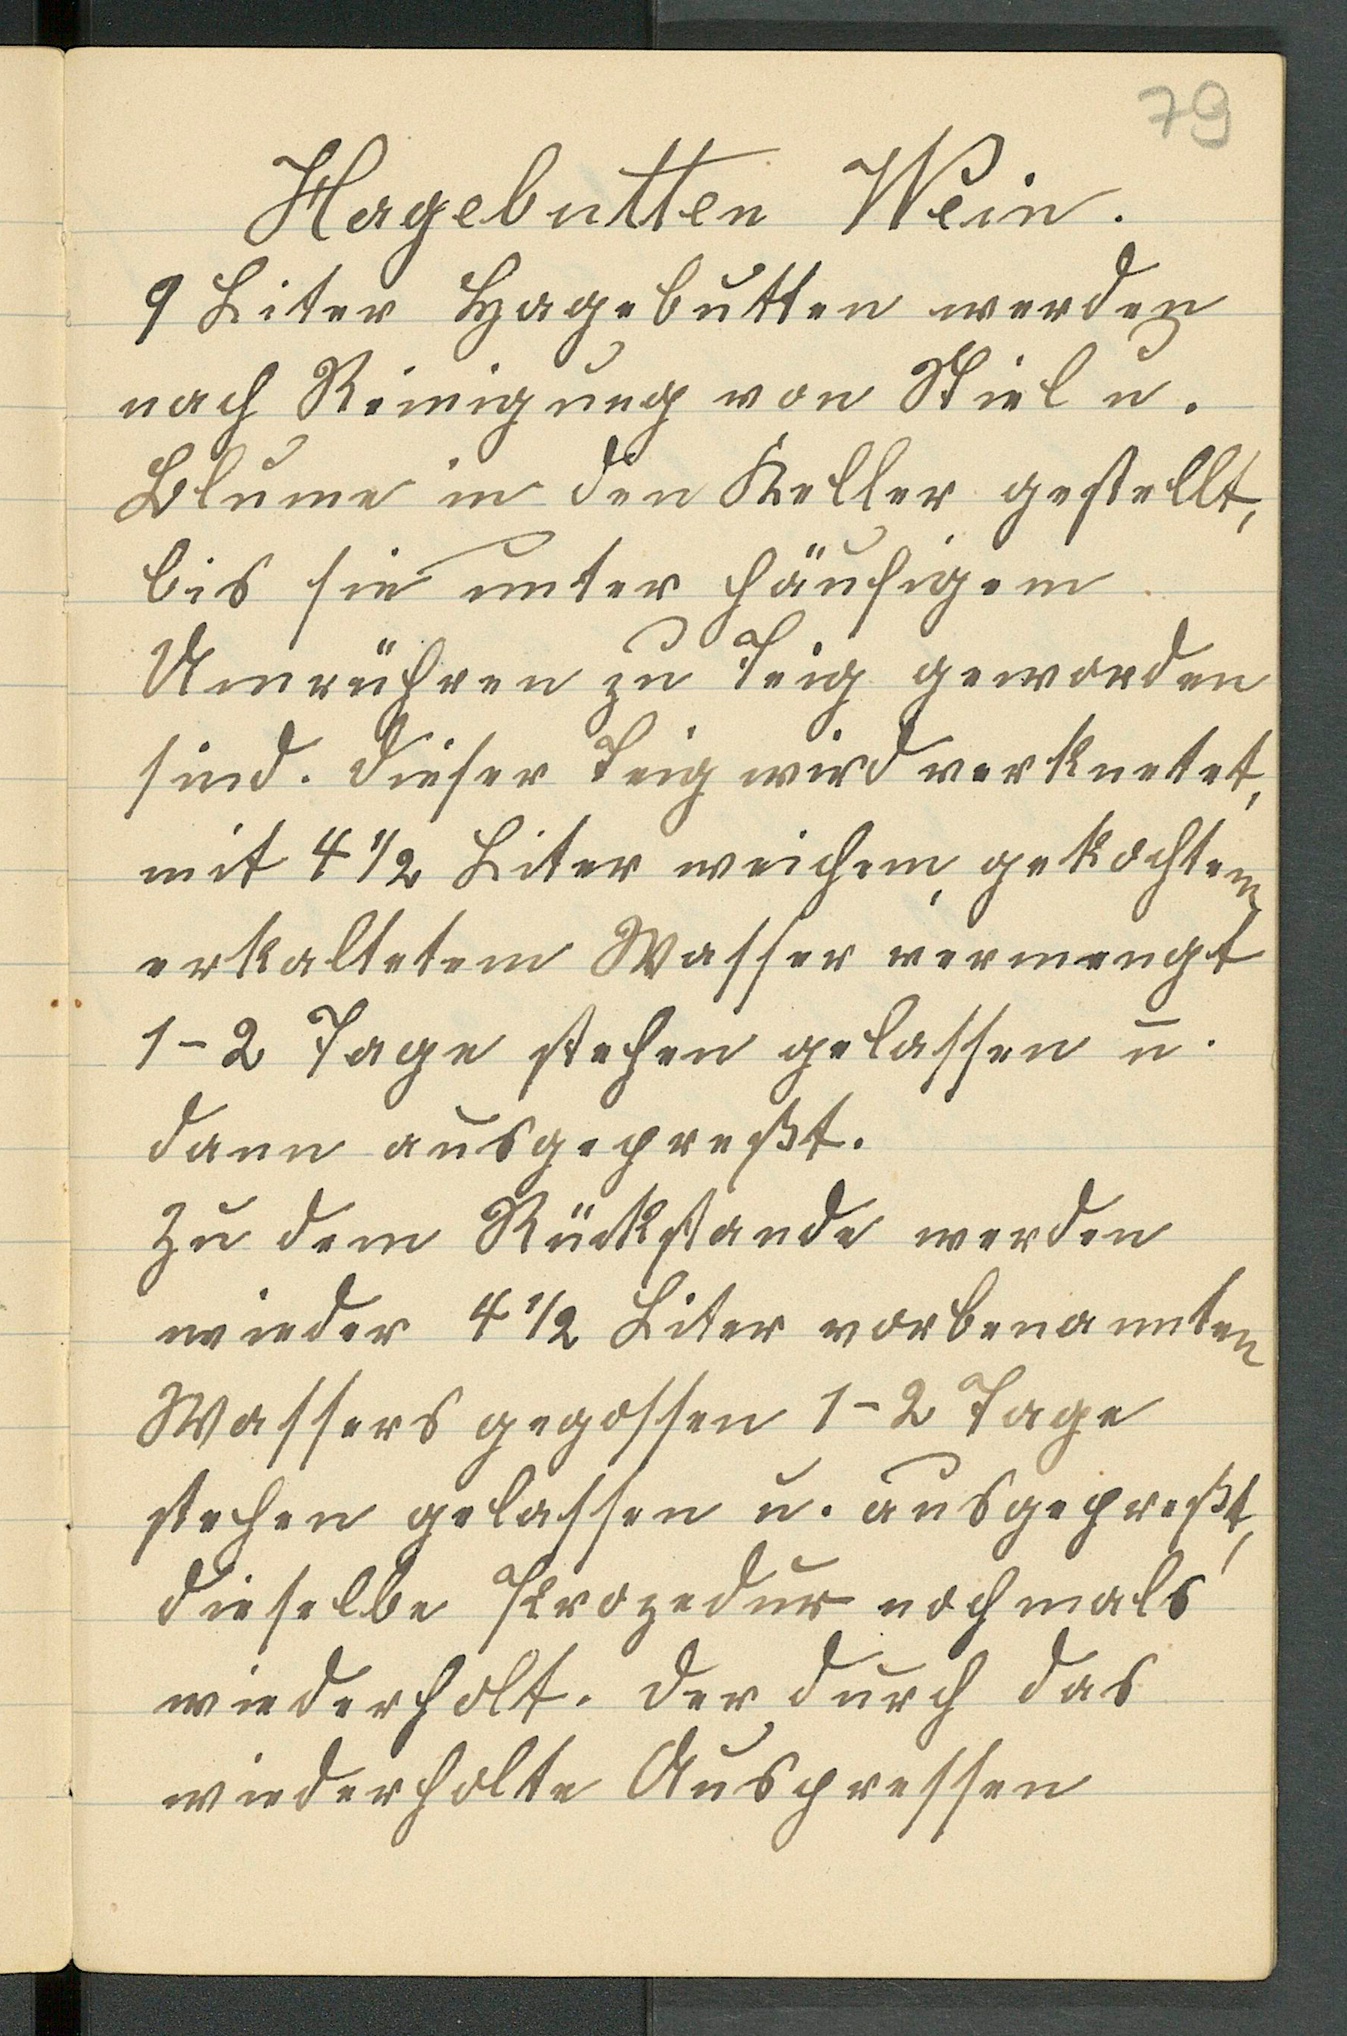 79
Hagebutten Wein.
9 Liter Hagebutten werden
nach Reinigung von Stiel u.
Blume in den Keller gestellt,
bis sie unter häufigem
Umrühren zu Teig geworden
sind. Dieser Teig wird verknetet,
mit 4 1/2 Liter weichem, gekochtem
erkaltetem Wasser vermengt
1-2 Tage stehen gelassen u.
dann ausgepreßt.
Zu dem Rückstande werden
wieder 4 1/2 Liter vorbenannten
Wassers gegossen 1-2 Tage
stehen gelassen u. ausgepreßt,
dieselbe Prozedur nochmals
wiederholt. Der durch das
wiederholte Auspressen